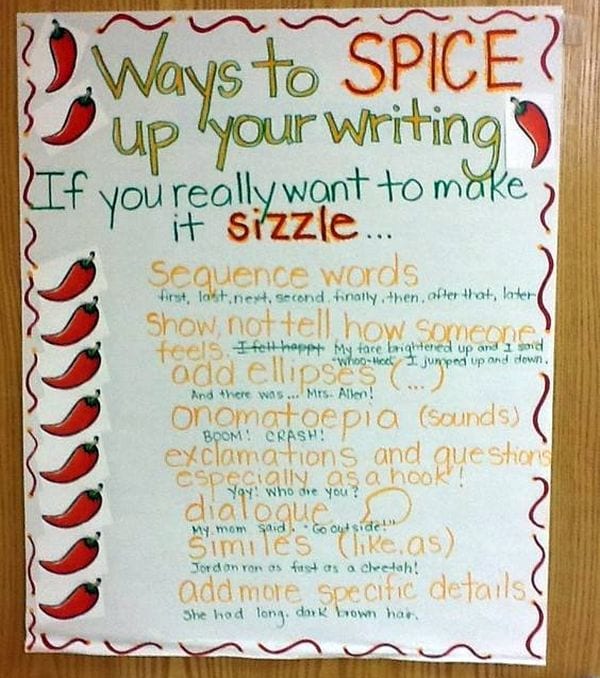 Ways to SPICE
up your writing
If you really want to make
it sizzle...
Sequence words
first, last, next, second, finally, then, after that, later
Show, not tell how someone
feels. I felt happy My face brightened up and I said
"Whoo-Hoo!" I jumped up and down.
add ellipses (...)
And there was... Mrs. Allen!
onomatoepia (sounds)
BOOM! CRASH!
exclamations and questions
especially as a hook!
Yay! Who are you?
dialogue
My mom said, "Go outside!"
similes (like, as)
Jordan ran as fast as a cheetah!
add more specific details
She had long, dark brown hair.